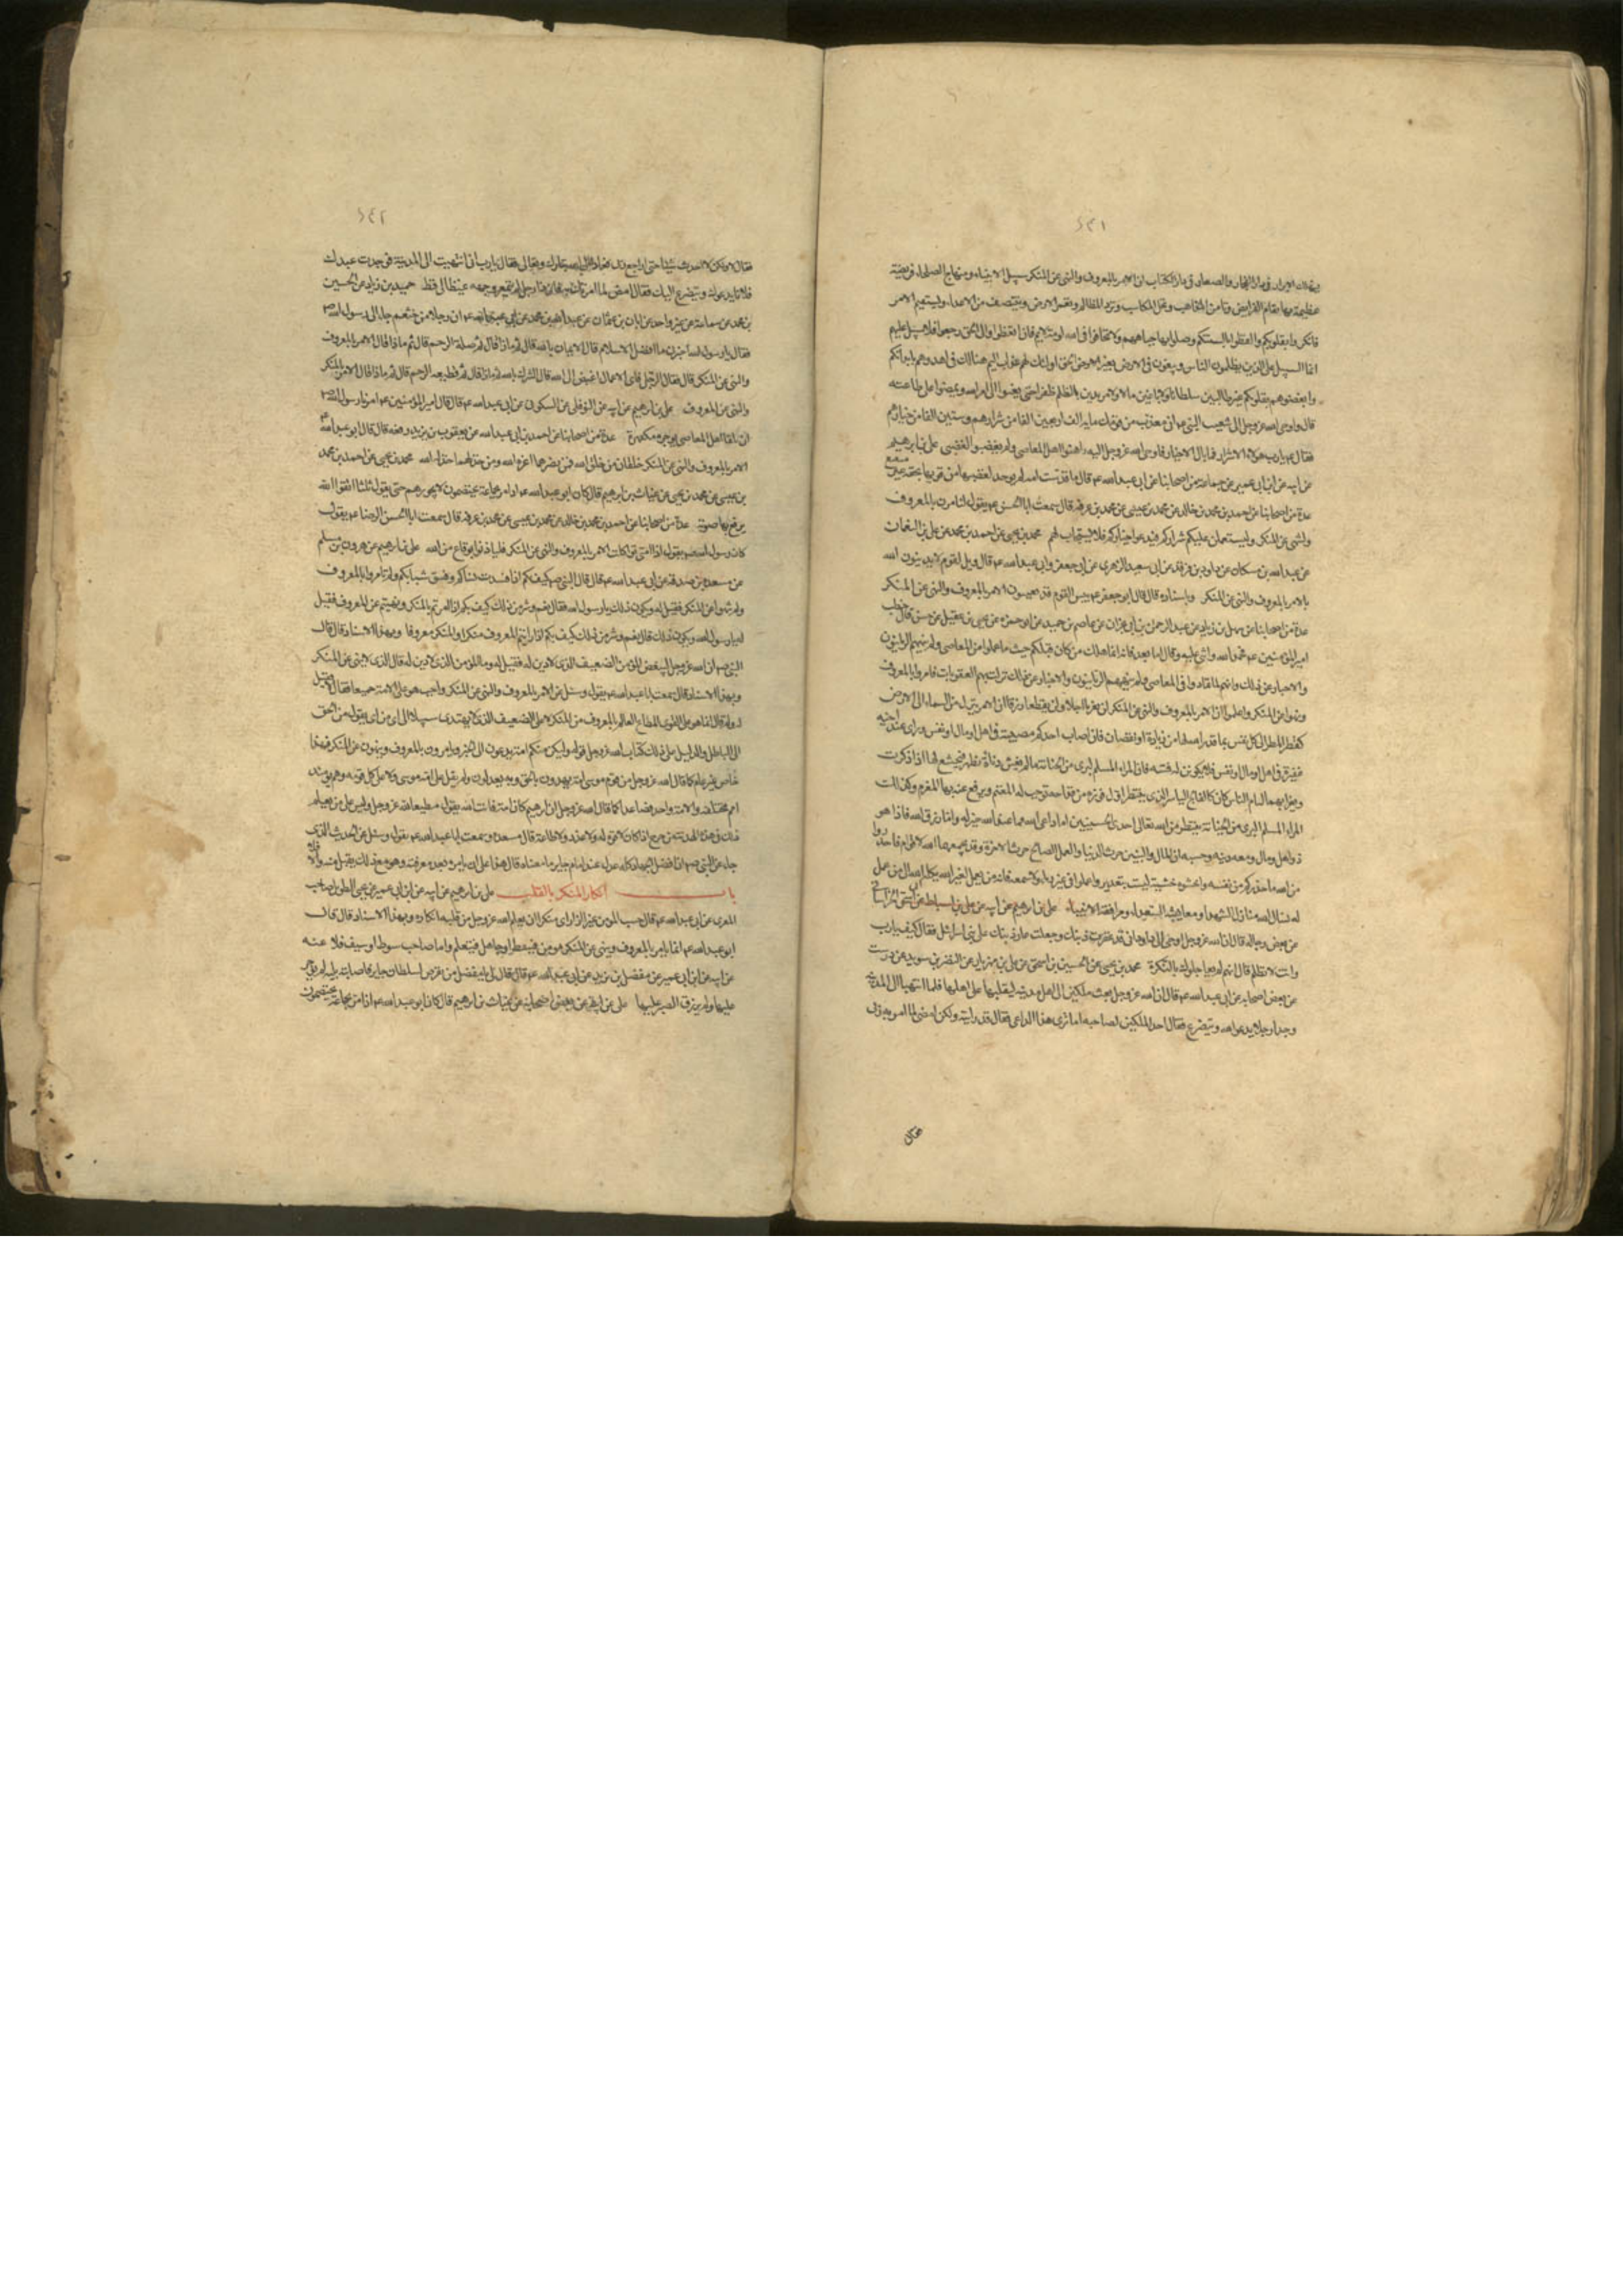 ٢٤١
فيهلك الابرار فى دار الفجار والصغار فى دار الكبار ان الامر بالمعروف والنهى عن المنكر سبيل الانبياء ومنهاج الصلحاء فريضة
عظيمة بها تقام الفرائض وتأمن المذاهب وتحل المكاسب وترد المظالم وتعمر الارض وينتصف من الاعداء ويستقيم الامر
فانكروا بقلوبكم والفظوا بالسنتكم وصكوا بها جباههم ولا تخافوا فى الله لومة لائم فان اتعظوا والى الحق رجعوا فلا سبيل عليهم
انما السبيل على الذين يظلمون الناس ويبغون فى الارض بغير الحق اولئك لهم عذاب اليم هنالك فجاهدوهم بابدانكم
وابغضوهم بقلوبكم غير طالبين سلطانا ولا باغين مالا ولا مريدين بالظلم ظفرا حتى يفيئوا الى امر الله ويمضوا على طاعته
قال واوحى الله عز وجل الى شعيب النبى ع انى معذب من قومك مائة الف اربعين الفا من شرارهم وستين الفا من خيارهم
فقال ع يارب هؤلاء الاشرار فما بال الاخيار فاوحى الله عز وجل اليه داهنوا اهل المعاصى ولم يغضبوا لغضبى على بن ابرهيم
عن ابيه عن ابن ابى عمير عن جماعة من اصحابنا عن ابى عبد الله ع قال ما قدست امة لم يؤخذ لضعيفها من قويها بحقه غير متعتع
عدة من اصحابنا عن احمد بن محمد بن خالد عن محمد بن عيسى عن محمد بن عرفه قال سمعت ابا الحسن ع يقول لتامرن بالمعروف
ولتنهن عن المنكر او ليستعملن عليكم شراركم فيدعو خياركم فلا يستجاب لهم محمد بن يحيى عن احمد بن محمد عن على بن النعمان
عن عبد الله بن مسكان عن داود بن فرقد عن ابى سعيد الزهرى عن ابى جعفر وابى عبد الله ع قال ويل لقوم لا يدينون الله
بالامر بالمعروف والنهى عن المنكر وباسناده قال قال ابو جعفر ع بئس القوم قوم يعيبون الامر بالمعروف والنهى عن المنكر
عدة من اصحابنا عن سهل بن زياد عن عبد الرحمن بن ابى نجران عن عاصم بن حميد عن ابى حمزه عن يحيى بن عقيل عن حسن قال خطب
امير المؤمنين ع فحمد الله واثنى عليه وقال اما بعد فانه انما هلك من كان قبلكم حيث ما عملوا من المعاصى ولم ينههم الربانيون
والاحبار عن ذلك وانهم لما تمادوا فى المعاصى ولم ينههم الربانيون والاحبار عن ذلك نزلت بهم العقوبات فامروا بالمعروف
وانهوا عن المنكر واعلموا ان الامر بالمعروف والنهى عن المنكر لن يقربا اجلا ولن يقطعا رزقا ان الامر ينزل من السماء الى الارض
كقطر المطر الى كل نفس بما قدر الله لها من زيادة او نقصان فان اصاب احدكم مصيبة فى اهل او مال او نفس وراى عند اخيه
غفيرة فى اهل او مال او نفس فلا يكونن له فتنة فان المرء المسلم لبرى من الخيانة ما لم يغش دناءة تظهر فيخشع لها اذا ذكرت
ويغرى بها لئام الناس كان كالفالج الياسر الذى ينتظر اول فوزه من قداحه توجب له المغنم ويدفع عنه بها المغرم وكذلك
المرء المسلم البرى من الخيانة ينتظر من الله تعالى احدى الحسنيين اما داعى الله فما عند الله خير له واما رزق الله فاذا هو
ذو اهل ومال ومعه دينه وحسبه ان المال والبنين حرث الدنيا والعمل الصالح حرث الاخرة وقد يجمعهما الله لاقوام فاحذروا
من الله ما حذركم من نفسه واخشوه خشية ليست بتعذير واعملوا فى غير رياء ولا سمعة فانه من يعمل لغير الله يكله الله الى من عمل
له نسال الله منازل الشهداء ومعايشة السعداء ومرافقة الانبياء على بن ابرهيم عن ابيه عن على بن اسباط عن ابى اسحق الخراسانى
عن بعض رجاله قال ان الله عز وجل اوحى الى داود انى قد غفرت ذنبك وجعلت عار ذنبك على بنى اسرائيل فقال كيف يارب
وانت لا تظلم قال انهم لم يعاجلوك بالنكرة محمد بن يحيى عن الحسين بن اسحق عن على بن مهزيار عن النضر بن سويد عن درست
عن بعض اصحابه عن ابى عبد الله ع قال ان الله عز وجل بعث ملكين الى اهل مدينة ليقلباها على اهلها فلما انتهيا الى المدينة
وجدا رجلا يدعو الله ويتضرع فقال احد الملكين لصاحبه اما ترى هذا الداعى فقال قد رايته ولكن امضى لما امر به ربى
فقال
٢٤٢
فقال لا ولكن لا احدث شيئا حتى اراجع ربى فعاد الى الله تبارك وتعالى فقال يارب انى انتهيت الى المدينة فوجدت عبدك
فلانا يدعوك ويتضرع اليك فقال امض لما امرتك به فان ذا رجل لم يتمعر وجهه غيظا لى قط حميد بن زياد عن الحسين
بن محمد عن سماعة عن غير واحد عن ابان بن عثمان عن عبد الله بن محمد عن ابى عبد الله ع ان رجلا من خثعم جاء الى رسول الله ص
فقال يا رسول الله اخبرنى ما افضل الاسلام قال الايمان بالله قال ثم ماذا قال ثم صلة الرحم قال ثم ماذا قال الامر بالمعروف
والنهى عن المنكر قال فقال الرجل فاى الاعمال ابغض الى الله قال الشرك بالله قال ثم ماذا قال ثم قطيعة الرحم قال ثم ماذا قال الامر بالمنكر
والنهى عن المعروف على بن ابرهيم عن ابيه عن النوفلى عن السكونى عن ابى عبد الله ع قال قال امير المؤمنين ع امرنا رسول الله ص
ان نلقى اهل المعاصى بوجوه مكفهرة عدة من اصحابنا عن احمد بن ابى عبد الله عن يعقوب بن يزيد رفعه قال قال ابو عبد الله ع
الامر بالمعروف والنهى عن المنكر خلقان من خلق الله فمن نصرهما اعزه الله ومن خذلهما خذله الله محمد بن يحيى عن احمد بن محمد
بن عيسى عن محمد بن يحيى عن غياث بن ابرهيم قال كان ابو عبد الله ع اذا مر بجماعة يختصمون لا يجوزهم حتى يقول ثلثا اتقوا الله
يرفع بها صوته عدة من اصحابنا عن احمد بن محمد بن خالد عن محمد بن عيسى عن محمد بن عرفه قال سمعت ابا الحسن الرضا ع يقول
كان رسول الله ص يقول اذا امتى تواكلت الامر بالمعروف والنهى عن المنكر فليأذنوا بوقاع من الله على بن ابرهيم عن هرون بن مسلم
عن مسعدة بن صدقه عن ابى عبد الله ع قال قال النبى ص كيف بكم اذا فسدت نساؤكم وفسق شبابكم ولم تامروا بالمعروف
ولم تنهوا عن المنكر فقيل له ويكون ذلك يا رسول الله فقال نعم وشر من ذلك كيف بكم اذا امرتم بالمنكر ونهيتم عن المعروف فقيل
له يا رسول الله ويكون ذلك قال نعم وشر من ذلك كيف بكم اذا رايتم المعروف منكرا والمنكر معروفا وبهذا الاسناد قال قال
النبى ص ان الله عز وجل ليبغض المؤمن الضعيف الذى لا دين له فقيل له وما المؤمن الذى لا دين له قال الذى لا ينهى عن المنكر
وبهذا الاسناد قال سمعت ابا عبد الله ع يقول وسئل عن الامر بالمعروف والنهى عن المنكر واجب هو على الامة جميعا فقال لا فقيل
له ولم قال انما هو على القوى المطاع العالم بالمعروف من المنكر لا على الضعيف الذى لا يهتدى سبيلا الى اى من اى يقول من الحق
الى الباطل والدليل على ذلك كتاب الله عز وجل قوله ولتكن منكم امة يدعون الى الخير ويامرون بالمعروف وينهون عن المنكر فهذا
خاص غير عام كما قال الله عز وجل ومن قوم موسى امة يهدون بالحق وبه يعدلون ولم يقل على امة موسى ولا على كل قومه وهم يومئذ
امم مختلفه والامة واحد فصاعدا كما قال الله عز وجل ان ابرهيم كان امة قانتا لله يقول مطيعا لله عز وجل وليس على من يعلم
ذلك فى هذه الهدنة من حرج اذا كان لا قوة له ولا عدد ولا طاعة قال مسعدة وسمعت ابا عبد الله ع يقول وسئل عن الحديث الذى
جاء عن النبى ص ان افضل الجهاد كلمة عدل عند امام جاير ما معناه قال هذا على ان يامره بعد معرفته وهو مع ذلك يقبل منه والا فلا
باب انكار المنكر بالقلب على بن ابرهيم عن ابيه عن ابن ابى عمير عن يحيى الطويل صاحب
المقرى عن ابى عبد الله ع قال حسب المؤمن غيرا اذا راى منكرا ان يعلم الله عز وجل من قلبه انكاره وبهذا الاسناد قال قال
ابو عبد الله ع انما يامر بالمعروف وينهى عن المنكر مؤمن فيتعظ او جاهل فيتعلم واما صاحب سوط او سيف فلا عنه
عن ابيه عن ابن ابى عمير عن مفضل بن يزيد عن ابى عبد الله ع قال قال لى يا مفضل من تعرض لسلطان جاير فاصابته بلية لم يوجر
عليها ولم يرزق الصبر عليها على عن ابيه عن بعض اصحابه عن غياث بن ابرهيم قال كان ابو عبد الله ع اذا مر بجماعة يختصمون